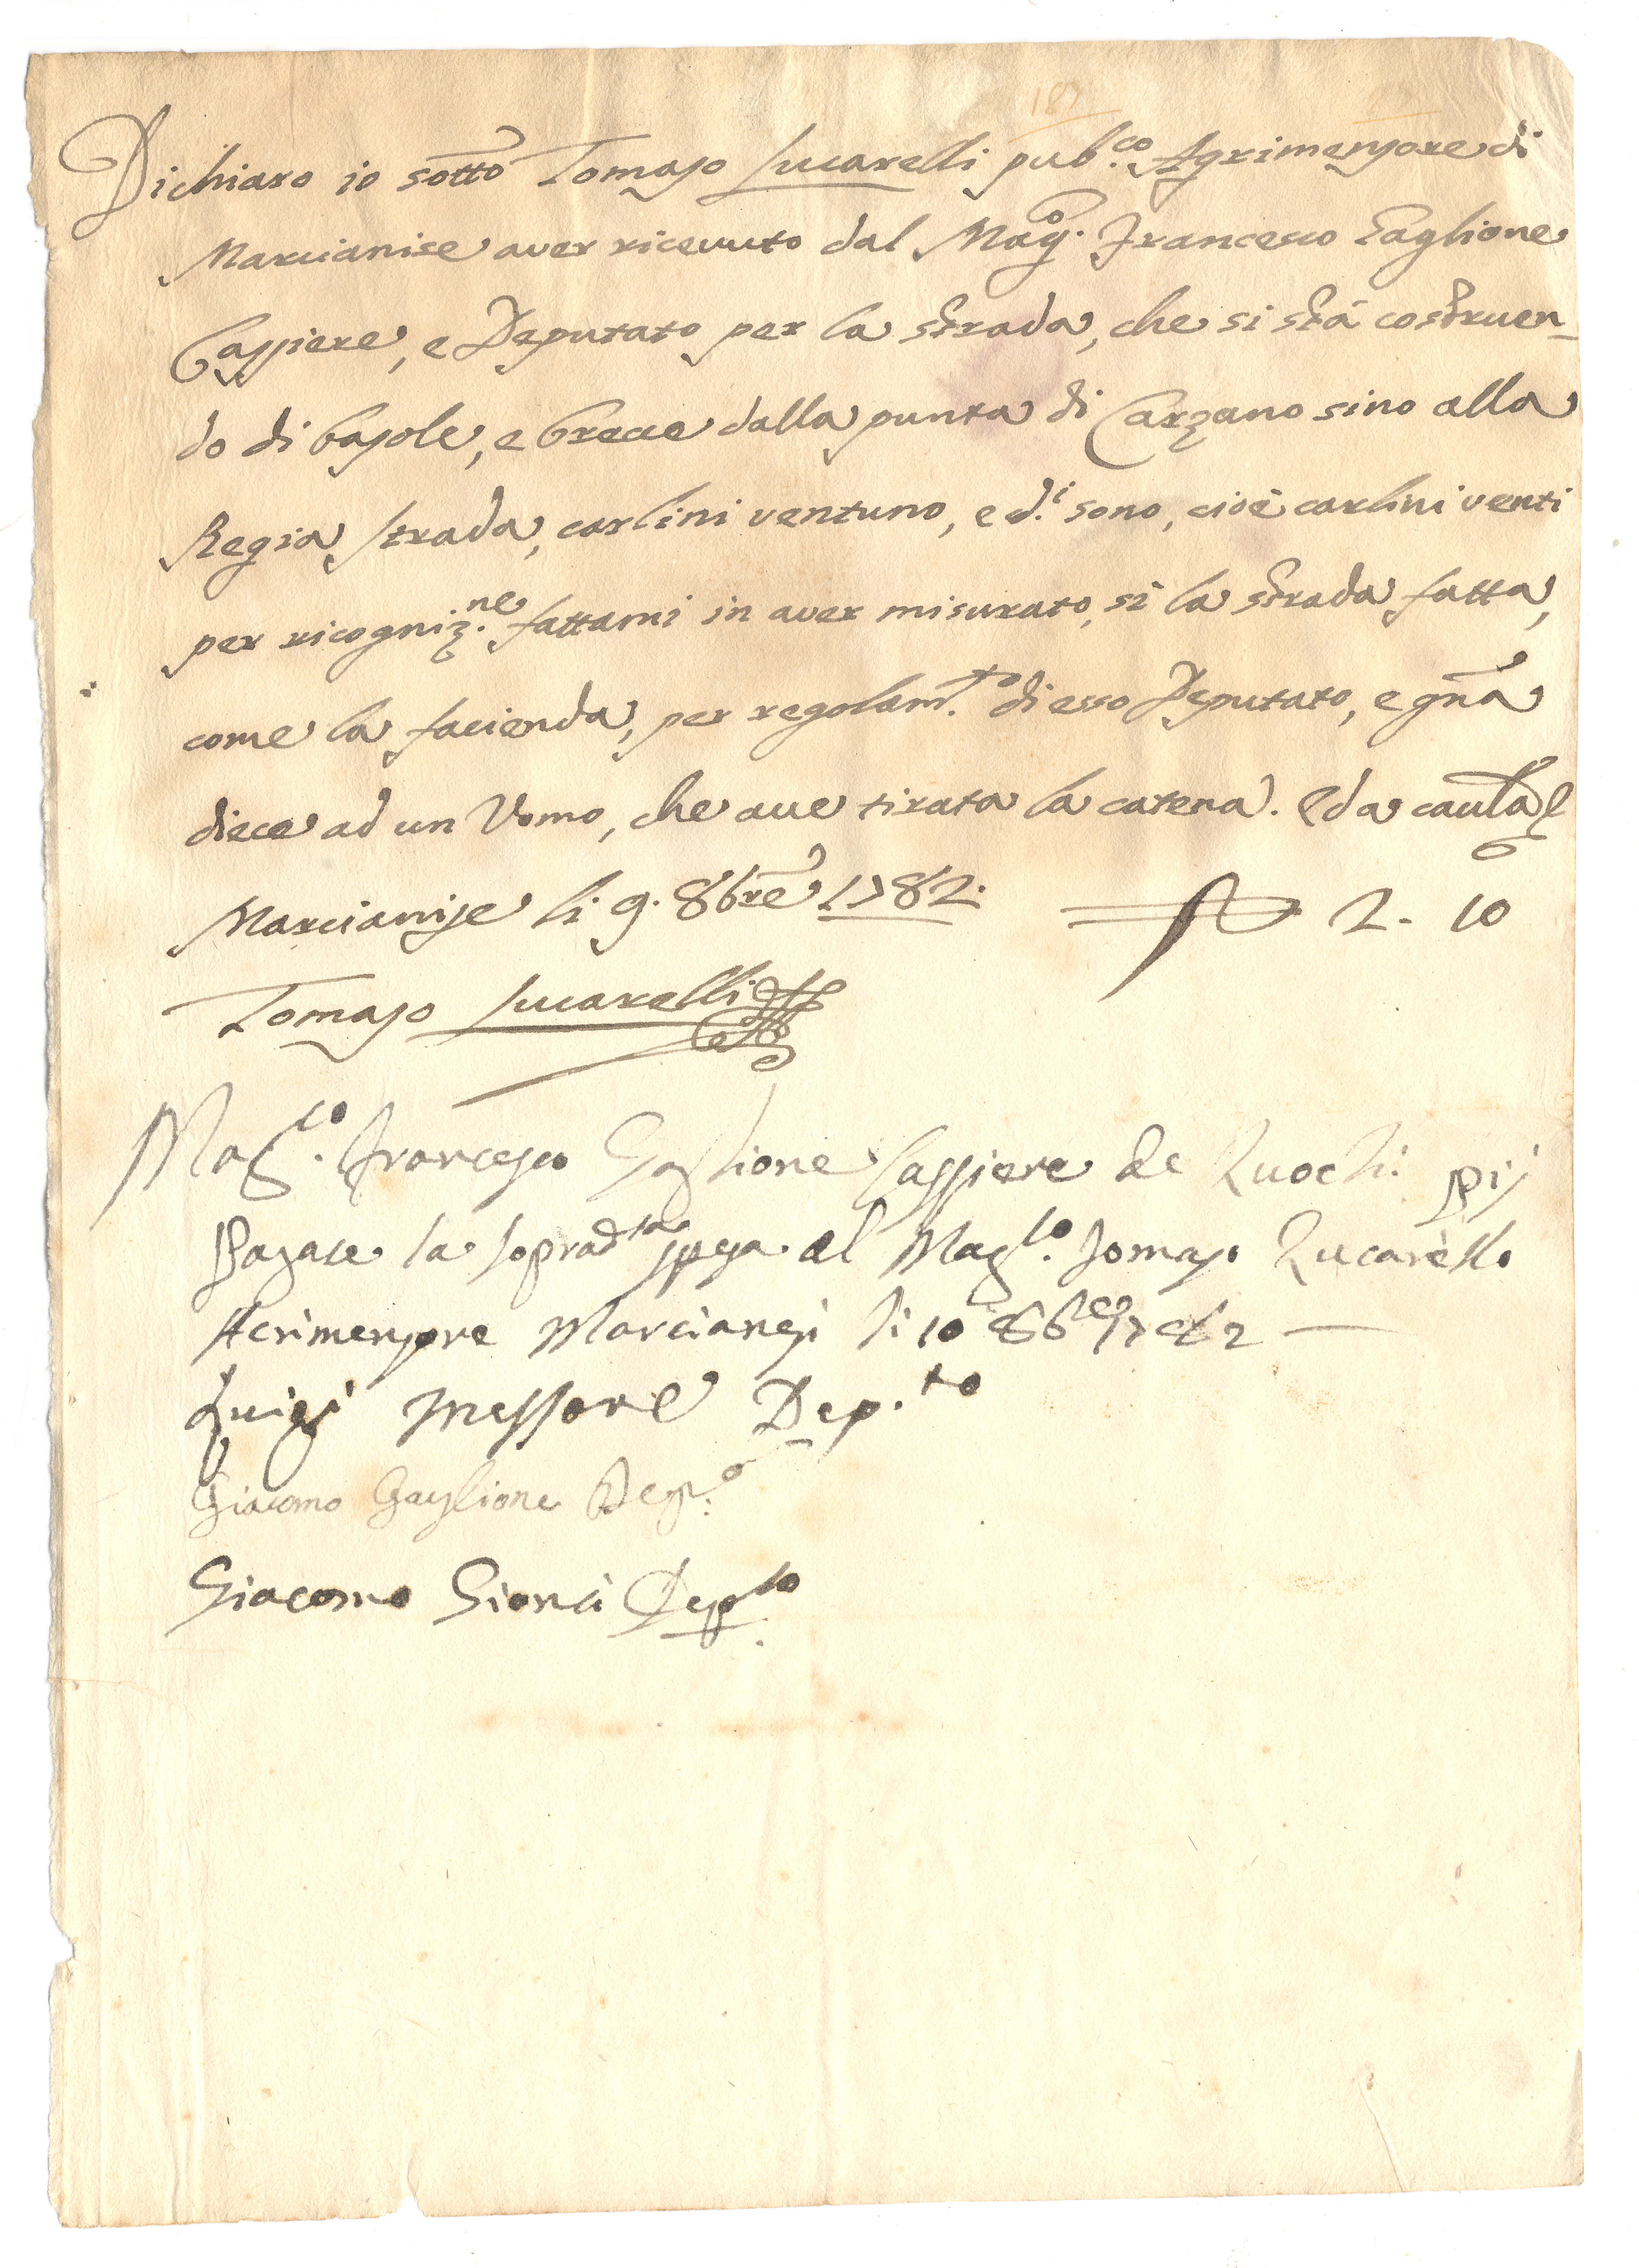 Dichiaro io sotto Tomaso Lucarelli pub.co Agrimensore di
Marcianise aver ricevuto dal Mag.o Francesco Gaglione
Cassiere, e Deputato per la strada, che si stà costruen-
do di basole, e brecce dalla punta di Carzano sino alla
Regia strada, carlini ventuno, e d.i sono, cioè carlini venti
per ricogniz.ne fattami in aver misurato, sì la strada fatta,
come la facienda, per regolam.to di esso Deputato, e gna
diece ad un Uomo, che ave tirata la catena. Ed a cautela
Marcianise li 9. 8bre 1782. 2- 10
Tomaso Lucarelli
Mag.co Francesco Gaglione Cassiere de Luochi pij
Pagate la soprad.ta spesa al Mag.co Tomaso Lucarello
Acrimensore Marcianesi li 10 8bre 1782
Luigi Messore Dep.to
Giacomo Gaglione Dep.o
Giacomo Dep.to